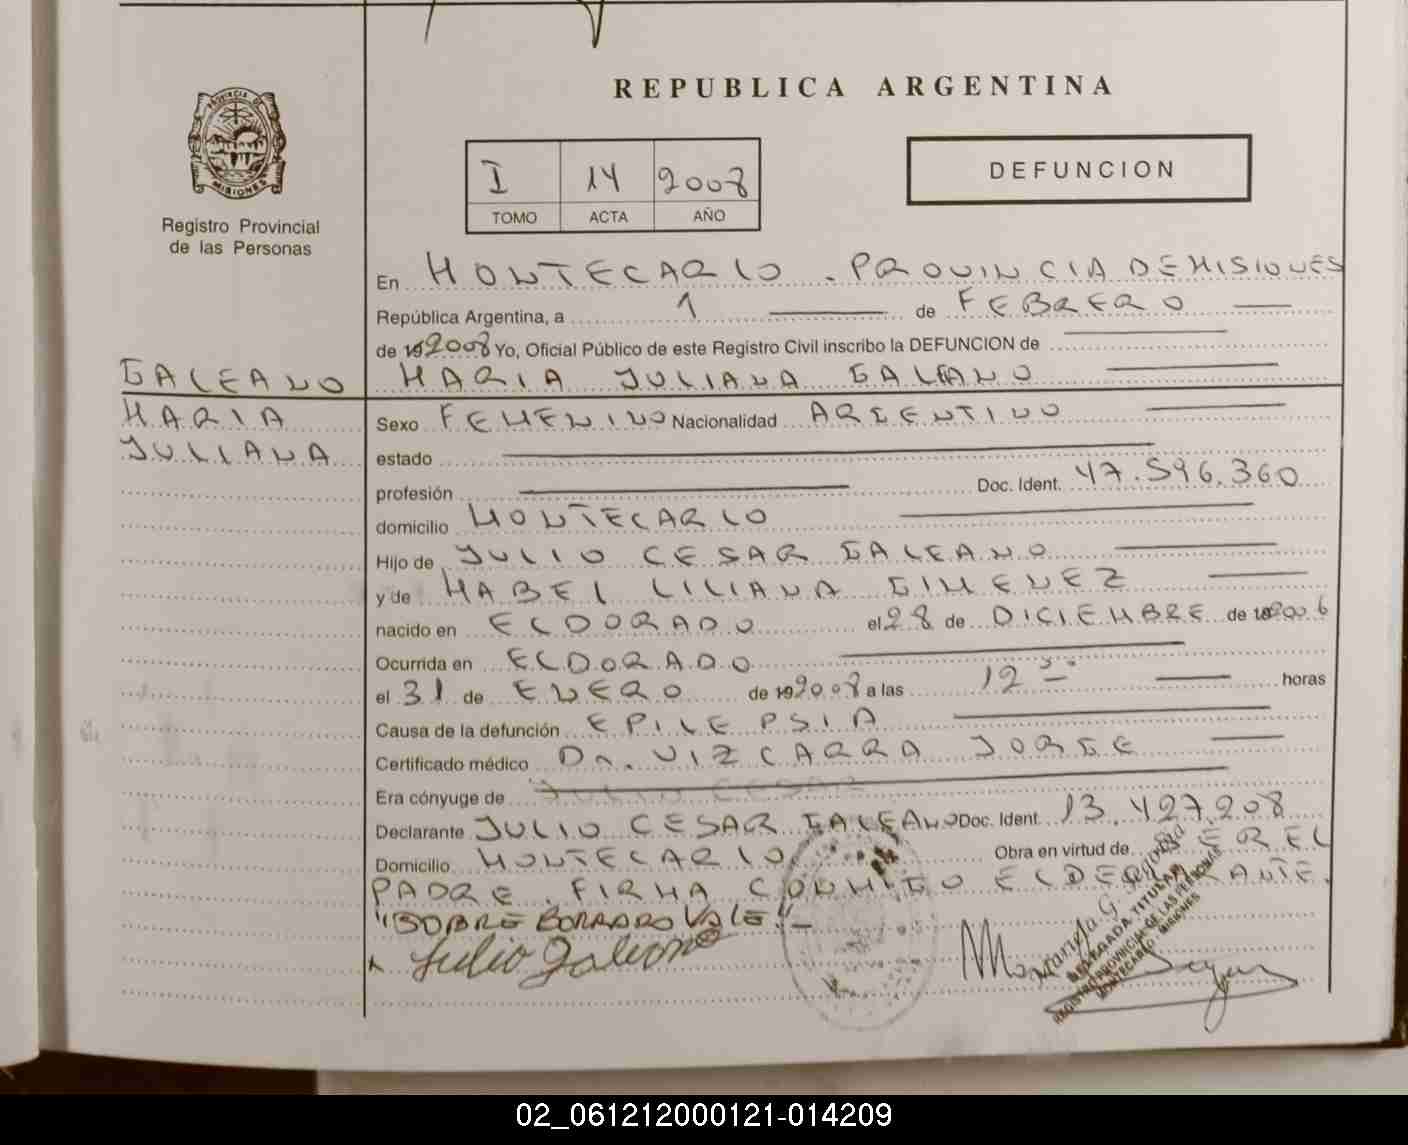 REPUBLICA ARGENTINA
PROVINCIA DE
MISIONES
Registro Provincial
de las Personas
I 14 2008
TOMO ACTA AÑO
DEFUNCION
En MONTECARLO. PROVINCIA DE MISIONES
República Argentina, a 1 de FEBRERO
de 192008 Yo, Oficial Público de este Registro Civil inscribo la DEFUNCION de
MARIA JULIANA GALEANO
GALEANO
MARIA
JULIANA
Sexo FEMENINO Nacionalidad ARGENTINO
estado
profesión Doc. Ident. 47.596.360
domicilio MONTECARLO
Hijo de JULIO CESAR GALEANO
y de MABEL LILIANA GIMENEZ
nacido en ELDORADO el 28 de DICIEMBRE de 2006
Ocurrida en ELDORADO
el 31 de ENERO de 192008 a las 12 horas
Causa de la defunción EPILEPSIA
Certificado médico Dr. VIZCARRA JORGE
Era cónyuge de JULIO CESAR
Declarante JULIO CESAR GALEANO Doc. Ident. 13.427.208
Domicilio MONTECARLO Obra en virtud de SER EL
PADRE. FIRMA CONMIGO EL DECLARANTE.
"SOBRE BORRADO VALE"-
x Julio Galeano
DELEGADA TITULAR
REGISTRO PROVINCIAL DE LAS PERSONAS
MONTECARLO MISIONES
02_061212000121-014209